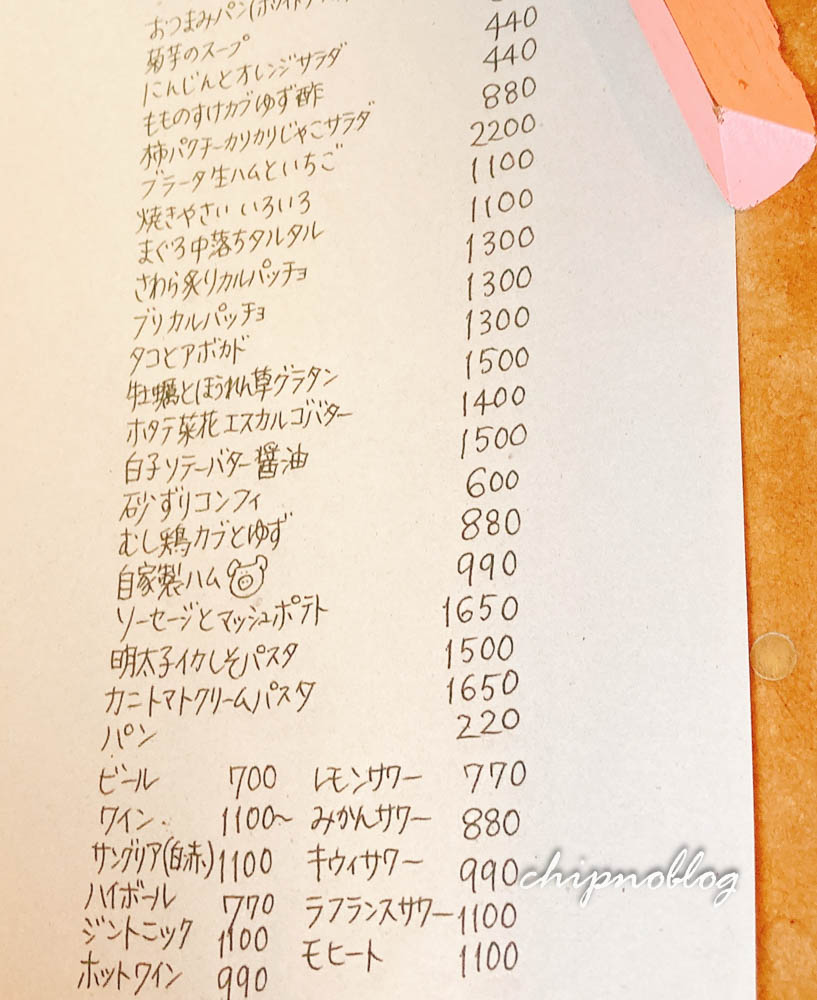 おつまみパン(ホワイト
菊芋のスープ
にんじんとオレンジサラダ 440
もものすけカブゆず酢 440
柿パクチーカリカリじゃこサラダ 880
ブラータ生ハムといちご 2200
焼きやさいいろいろ 1100
まぐろ中落ちタルタル 1100
さわら炙りカルパッチョ 1300
ブリカルパッチョ 1300
タコとアボカド 1300
牡蠣とほうれん草グラタン 1500
ホタテ菜花エスカルゴバター 1400
白子ソテーバター醤油 1500
砂ずりコンフィ 600
むし鶏カブとゆず 880
自家製ハム 990
ソーセージとマッシュポテト 1650
明太子イカしそパスタ 1500
カニトマトクリームパスタ 1650
パン 220
ビール 700 レモンサワー 770
ワイン 1100〜 みかんサワー 880
サングリア(白.赤.) 1100 キウィサワー 990
ハイボール 770 ラフランスサワー 1100
ジントニック 1100 モヒート 1100
ホットワイン 990
chipnoblog